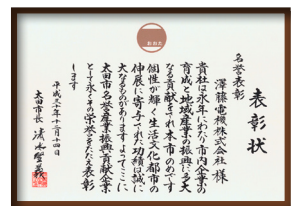 表彰状
名誉表彰
澤藤電機株式会社 様
貴社は永年にわたり市内企業の
育成と地域産業の振興に多大
なる貢献をされ本市のめざす
個性が輝く生活文化都市の
伸展に寄与された功績は誠に
大なるものがありますよってここに
太田市名誉産業振興貢献企業
として永くその栄誉をたたえ表彰
します
平成三十年十二月十四日
太田市長 清水聖義